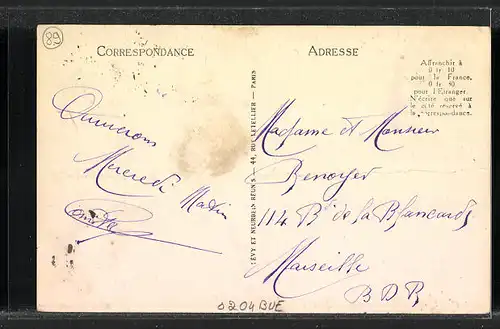 89
CORRESPONDANCE
Arriverons
Mercredi Matin
ADRESSE
Affranchir à
0 fr. 10
pour la France,
0 fr. 50
pour l'Étranger.
N'écrire que sur
le côté réservé à
la correspondance.
Madame et Monsieur
Benoyer
114 Bd de la Blancarde
Marseille
B D R
LÉVY ET NEURDEIN RÉUNIS — 44, RUE LETELLIER — PARIS
S204BUE